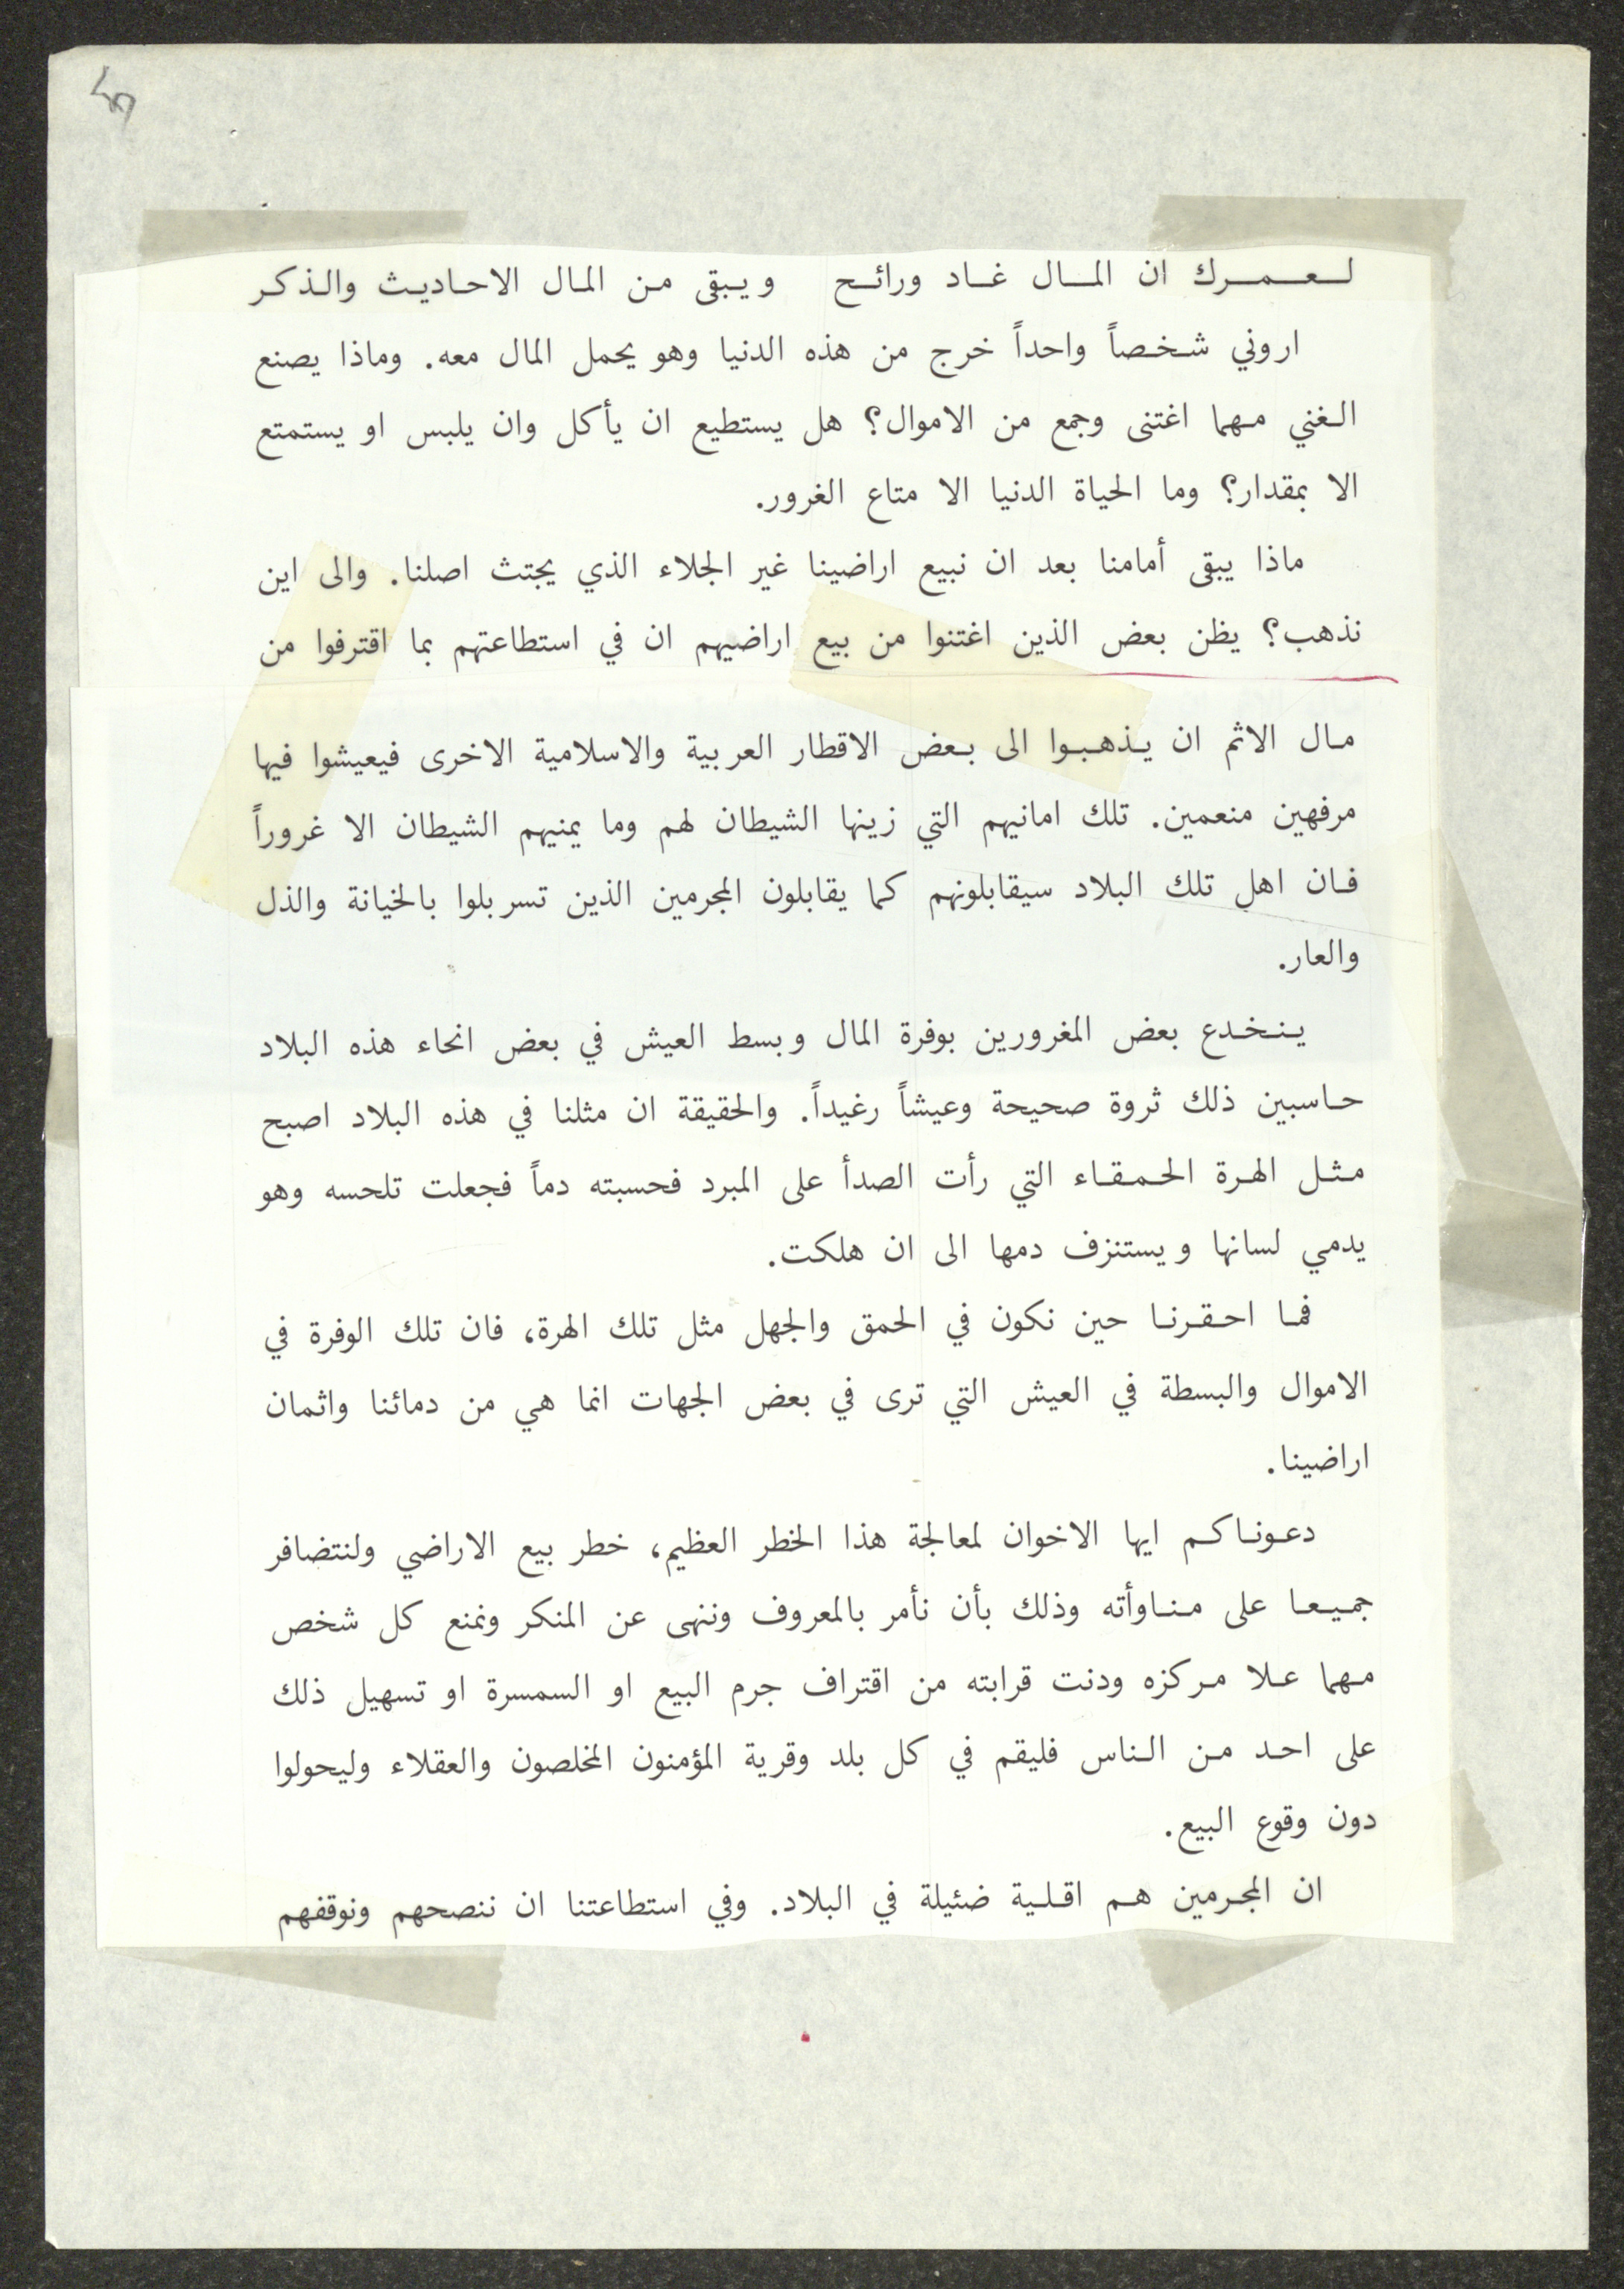 لعمرك ان المال غاد ورائح ويبقى من المال الاحاديث والذكر
اروني شخصاً واحداً خرج من هذه الدنيا وهو يحمل المال معه. وماذا يصنع
الغني مهما اغتنى وجمع من الاموال؟ هل يستطيع ان يأكل وان يلبس او يستمتع
الا بمقدار؟ وما الحياة الدنيا الا متاع الغرور.
ماذا يبقى أمامنا بعد ان نبيع اراضينا غير الجلاء الذي يجتث اصلنا. والى اين
نذهب؟ يظن بعض الذين اغتنوا من بيع اراضيهم ان في استطاعتهم بما اقترفوا من
مال الاثم ان يذهبوا الى بعض الاقطار العربية والاسلامية الاخرى فيعيشوا فيها
مرفهين منعمين. تلك امانيهم التي زينها الشيطان لهم وما يمنيهم الشيطان الا غروراً
فان اهل تلك البلاد سيقابلونهم كما يقابلون المجرمين الذين تسربلوا بالخيانة والذل
والعار.
ينخدع بعض المغرورين بوفرة المال وبسط العيش في بعض انحاء هذه البلاد
حاسبين ذلك ثروة صحيحة وعيشاً رغيداً. والحقيقة ان مثلنا في هذه البلاد اصبح
مثل الهرة الحمقاء التي رأت الصدأ على المبرد فحسبته دماً فجعلت تلحسه وهو
يدمي لسانها ويستنزف دمها الى ان هلكت.
فما احقرنا حين نكون في الحمق والجهل مثل تلك الهرة، فان تلك الوفرة في
الاموال والبسطة في العيش التي ترى في بعض الجهات انما هي من دمائنا واثمان
اراضينا.
دعوناكم ايها الاخوان لمعالجة هذا الخطر العظيم، خطر بيع الاراضي ولنتضافر
جميعا على مناوأته وذلك بأن نأمر بالمعروف وننهى عن المنكر ونمنع كل شخص
مهما علا مركزه ودنت قرابته من اقتراف جرم البيع او السمسرة او تسهيل ذلك
على احد من الناس فليقم في كل بلد وقرية المؤمنون المخلصون والعقلاء وليحولوا
دون وقوع البيع.
ان المجرمين هم اقلية ضئيلة في البلاد. وفي استطاعتنا ان ننصحهم ونوقفهم